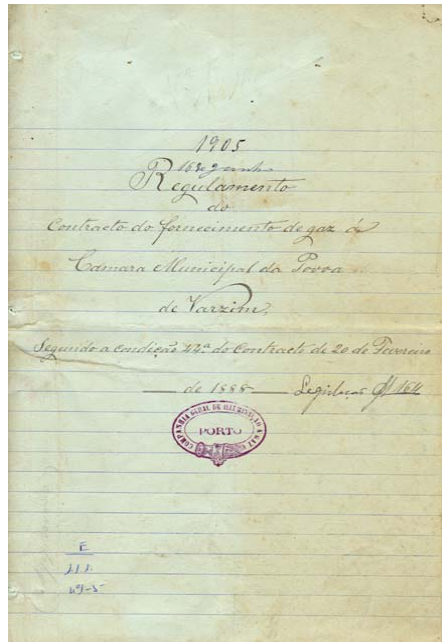 1905
16 de Junho
Regulamento
do
Contracto do fornecimento de gaz á
Camara Municipal da Povoa
de Varzim.
Segundo a condição 22ª do Contracto de 20 de Fevereiro
de 1888 Legislação fl 164
COMPANHIA GERAL DE ILLUMINAÇÃO A GAZ
PORTO
E